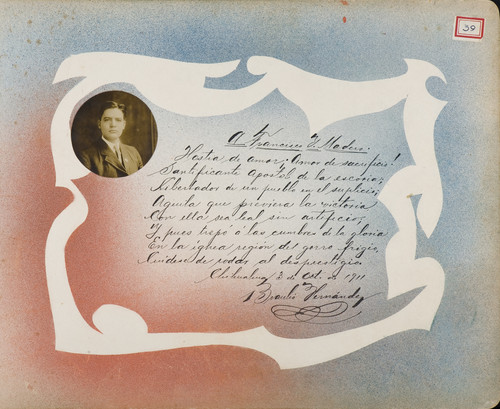 39
A Francisco I. Madero.
Hostia de amor. Amor de sacrificio!
Santificante apostol de la escoria;
Libertador de un pueblo en el suplicio,
Aguila que previera la victoria
Con ella sea leal sin artificio;
Y pues trepó á las cumbres de la gloria
En la ignea región del gorro frigio,
Cuídese de rodar al desprestigio.
Chihuahua, 2 de Oct. de 1911
Braulio Hernández